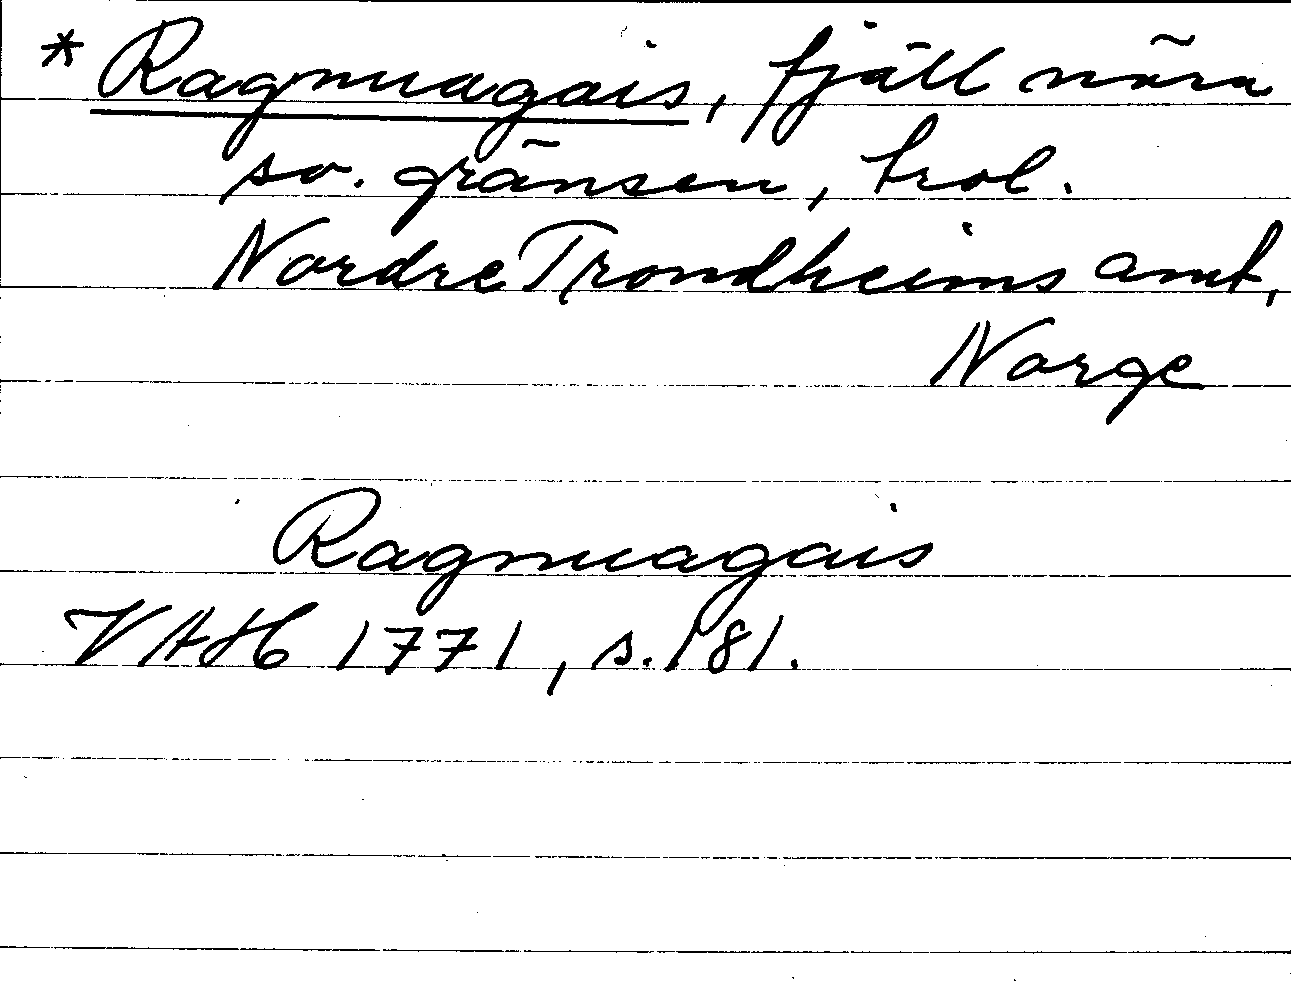 * Ragmuagais, fjäll nära
sv. gränsen, trol.
Nordre Trondheims amt,
Norge
Ragmuagais
VAH 1771, s. 181.